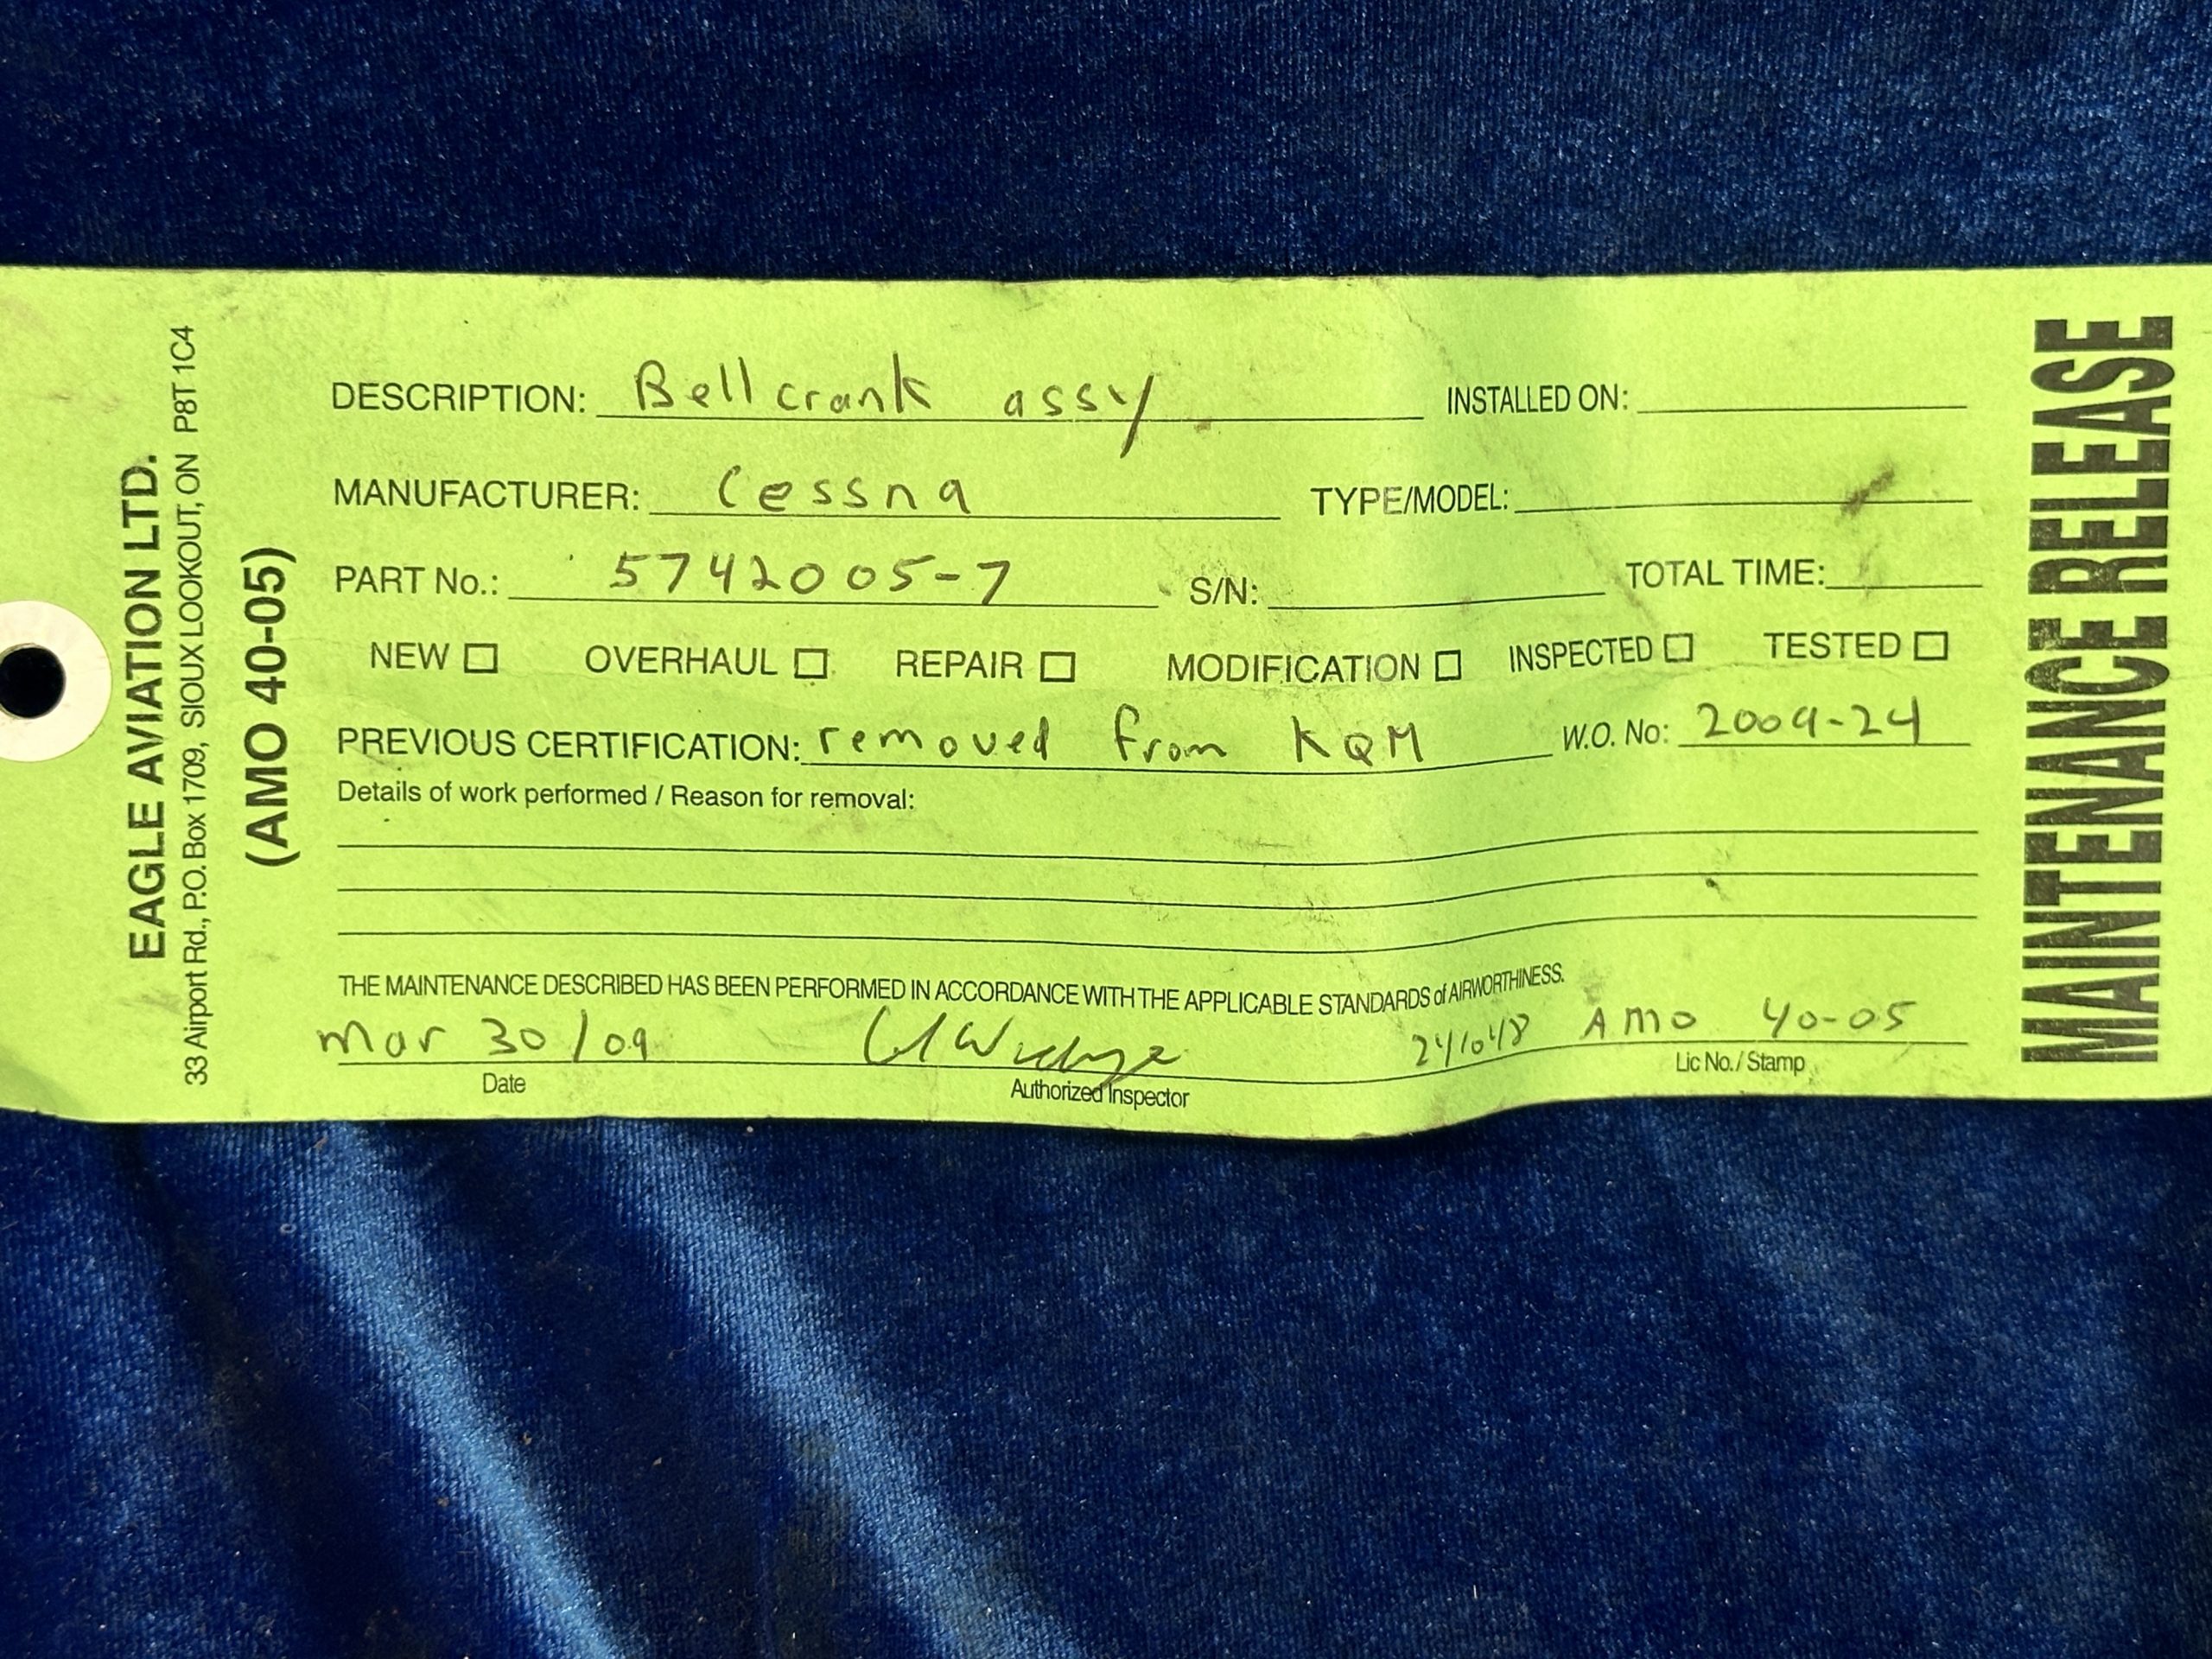 EAGLE AVIATION LTD.
33 Airport Rd., P.O. Box 1709, SIOUX LOOKOUT, ON P8T 1C4
(AMO 40-05)
DESCRIPTION: Bellcrank assy INSTALLED ON:
MANUFACTURER: Cessna TYPE/MODEL:
PART No.: 5742005-7 S/N: TOTAL TIME:
NEW OVERHAUL REPAIR MODIFICATION INSPECTED TESTED
PREVIOUS CERTIFICATION: removed from KQM W.O. No: 2009-24
Details of work performed / Reason for removal:
THE MAINTENANCE DESCRIBED HAS BEEN PERFORMED IN ACCORDANCE WITH THE APPLICABLE STANDARDS of AIRWORTHINESS.
Mar 30/09 AMO 40-05
Date Authorized Inspector Lic No./ Stamp
MAINTENANCE RELEASE